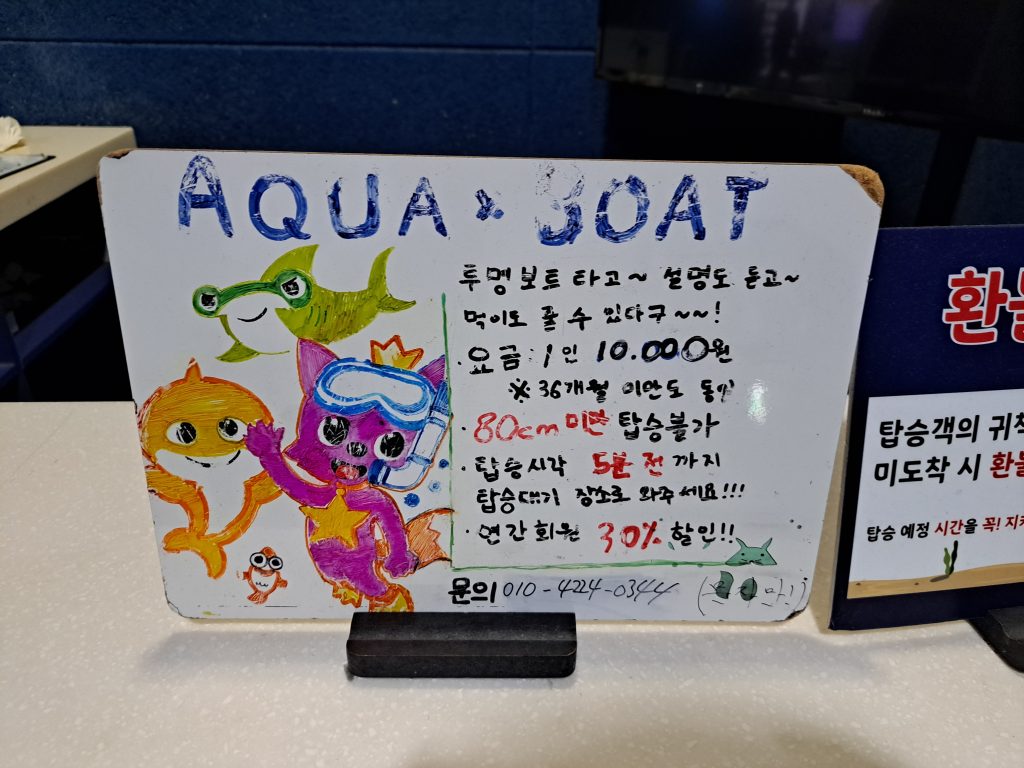 AQUA BOAT
투명보트 타고~ 설명도 듣고~
먹이도 줄 수 있다구~~!
· 요금 : 1인 10.000원
※ 36개월 미만도 동일
· 80cm 미만 탑승불가
· 탑승시각 5분 전 까지
탑승대기 장소로 와주세요!!!
· 연간회원 30% 할인!!
문의 010-4224-0344
환불
탑승객의 귀책
미도착 시 환불
탑승 예정 시간을 꼭! 지켜